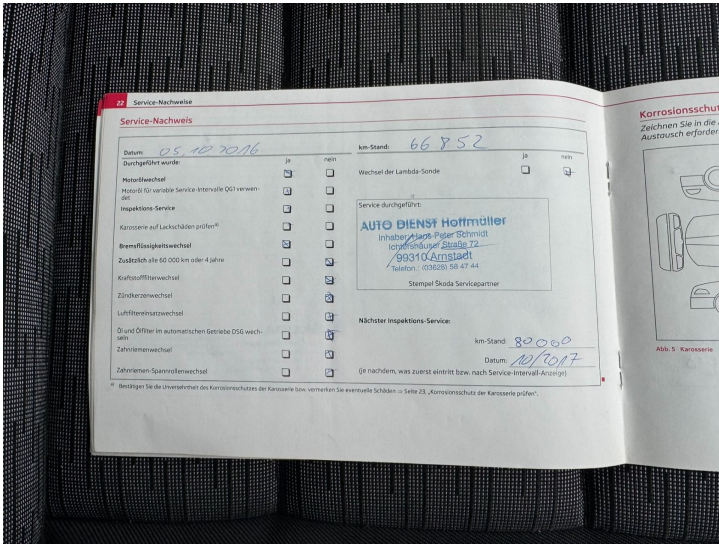 22 Service-Nachweise
Service-Nachweis
Datum: 05.10 2016
km-Stand: 66852
Durchgeführt wurde:
ja
nein
ja
nein
Motorölwechsel
Wechsel der Lambda-Sonde
Motoröl für variable Service-Intervalle QG1 verwen-
det
Inspektions-Service
Karosserie auf Lackschäden prüfen a)
Bremsflüssigkeitswechsel
Zusätzlich alle 60 000 km oder 4 Jahre
Kraftstofffilterwechsel
Zündkerzenwechsel
Luftfiltereinsatzwechsel
Öl und Ölfilter im automatischen Getriebe DSG wech-
seln
Zahnriemenwechsel
Zahnriemen-Spannrollenwechsel
Service durchgeführt:
AUTO DIENST Hoffmüller
Inhaber Hans-Peter Schmidt
Ichtershäuser Straße 72
99310 Arnstadt
Telefon.: (03628) 58 47 44
Stempel Škoda Servicepartner
Nächster Inspektions-Service:
km-Stand 80000
Datum: 10/2017
(je nachdem, was zuerst eintritt bzw. nach Service-Intervall-Anzeige)
a) Bestätigen Sie die Unversehrtheit des Korrosionsschutzes der Karosserie bzw. vermerken Sie eventuelle Schäden ⇒ Seite 23, „Korrosionsschutz der Karosserie prüfen".
Korrosionsschut
Zeichnen Sie in die
Austausch erforder
Abb. 5 Karosserie